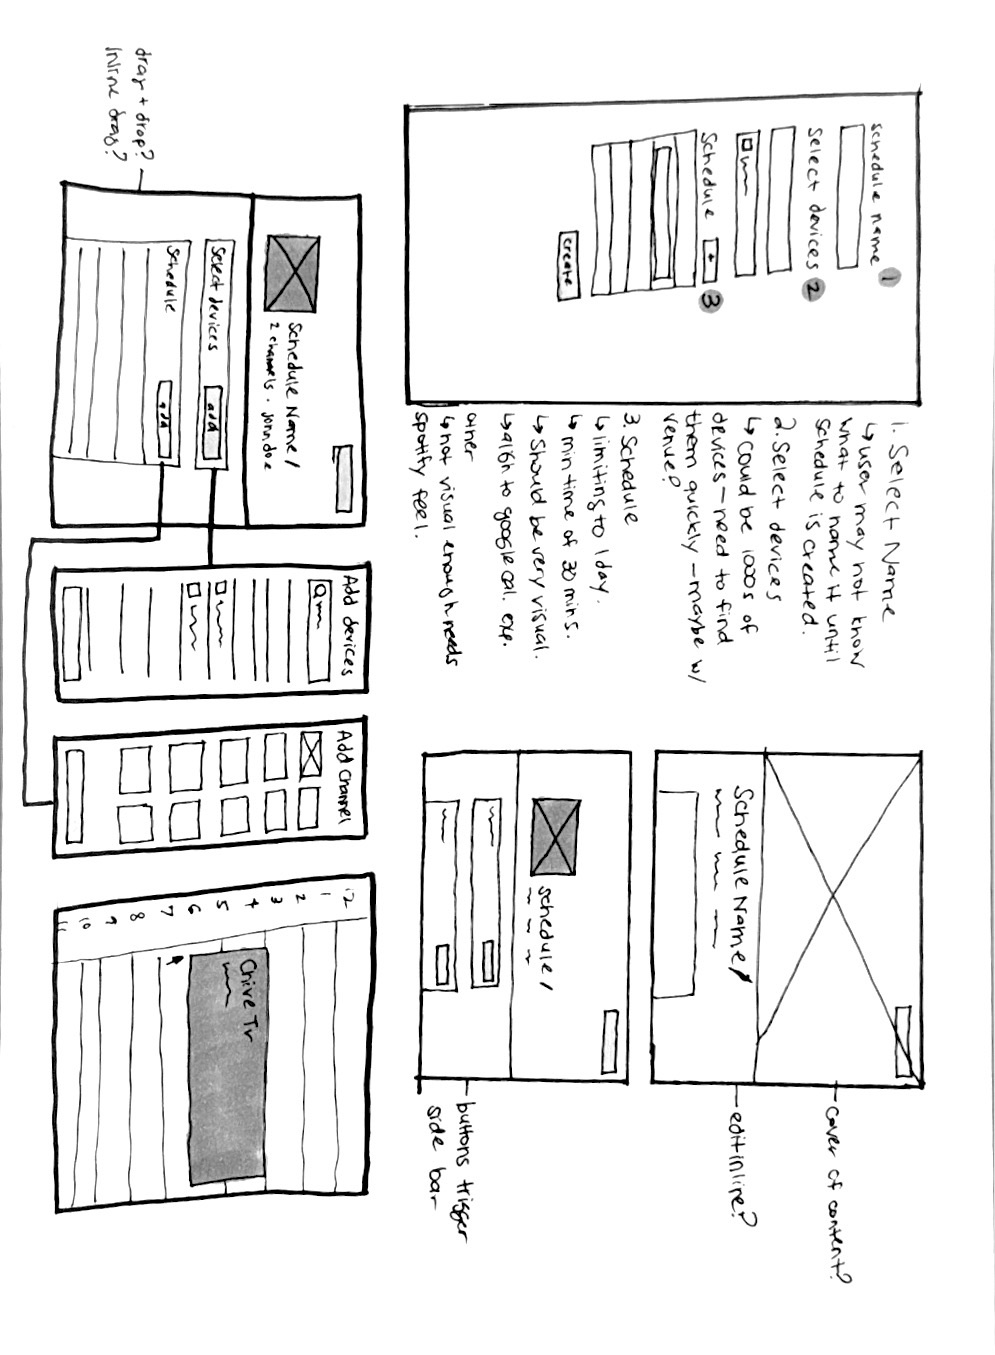 schedule name 1
select devices 2
schedule + 3
create
1. Select Name
↳ user may not know
what to name it until
schedule is created.
2. Select devices
↳ could be 1000s of
devices – need to find
them quickly – maybe w/
venue?
3. Schedule
↳ limiting to 1 day.
↳ min time of 30 mins.
↳ Should be very visual.
↳ align to google cal. exp.
other
↳ not visual enough needs
spotify feel.
Schedule Name/
cover of content?
edit inline?
schedule/
buttons trigger
side bar
drag + drop?
inline drag?
Schedule Name/
2 channels . john doe
Select devices add
Schedule add
Add devices
Add Channel
12
1
2
3
4
5
6
7
8
9
10
11
Chive Tv